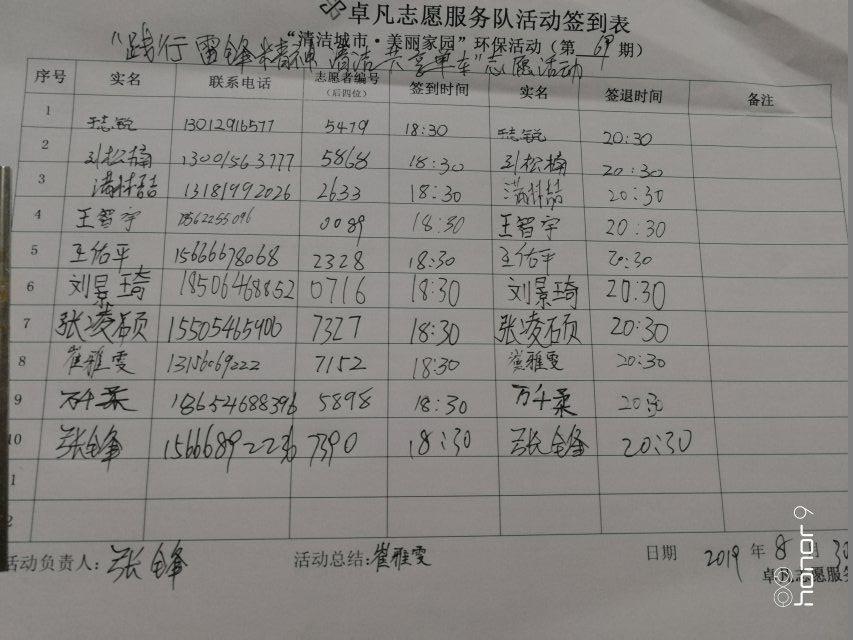 卓凡志愿服务队活动签到表
“清洁城市·美丽家园”环保活动（第69期）
“践行雷锋精神 清洁共享单车”志愿活动
序号 实名 联系电话 志愿者编号（后四位） 签到时间 实名 签退时间 备注
1 于志锐 13012916577 5479 18:30 于志锐 20:30
2 刘松楠 13001563777 5868 18:30 刘松楠 20:30
3 13181992026 2633 18:30 20:30
4 王智宇 0089 18:30 王智宇 20:30
5 王佑平 15666678068 2328 18:30 王佑平 20:30
6 刘景琦 18506468852 0716 18:30 刘景琦 20:30
7 张凌硕 15505465906 7327 18:30 张凌硕 20:30
8 崔雅雯 13156069222 7152 18:30 崔雅雯 20:30
9 万千柔 18654688396 5898 18:30 万千柔 20:30
10 张全锋 15666892236 7390 18:30 张全锋 20:30
1
2
活动负责人：张全锋 活动总结：崔雅雯 日期 2019年8月30
卓凡志愿服务
honor 9